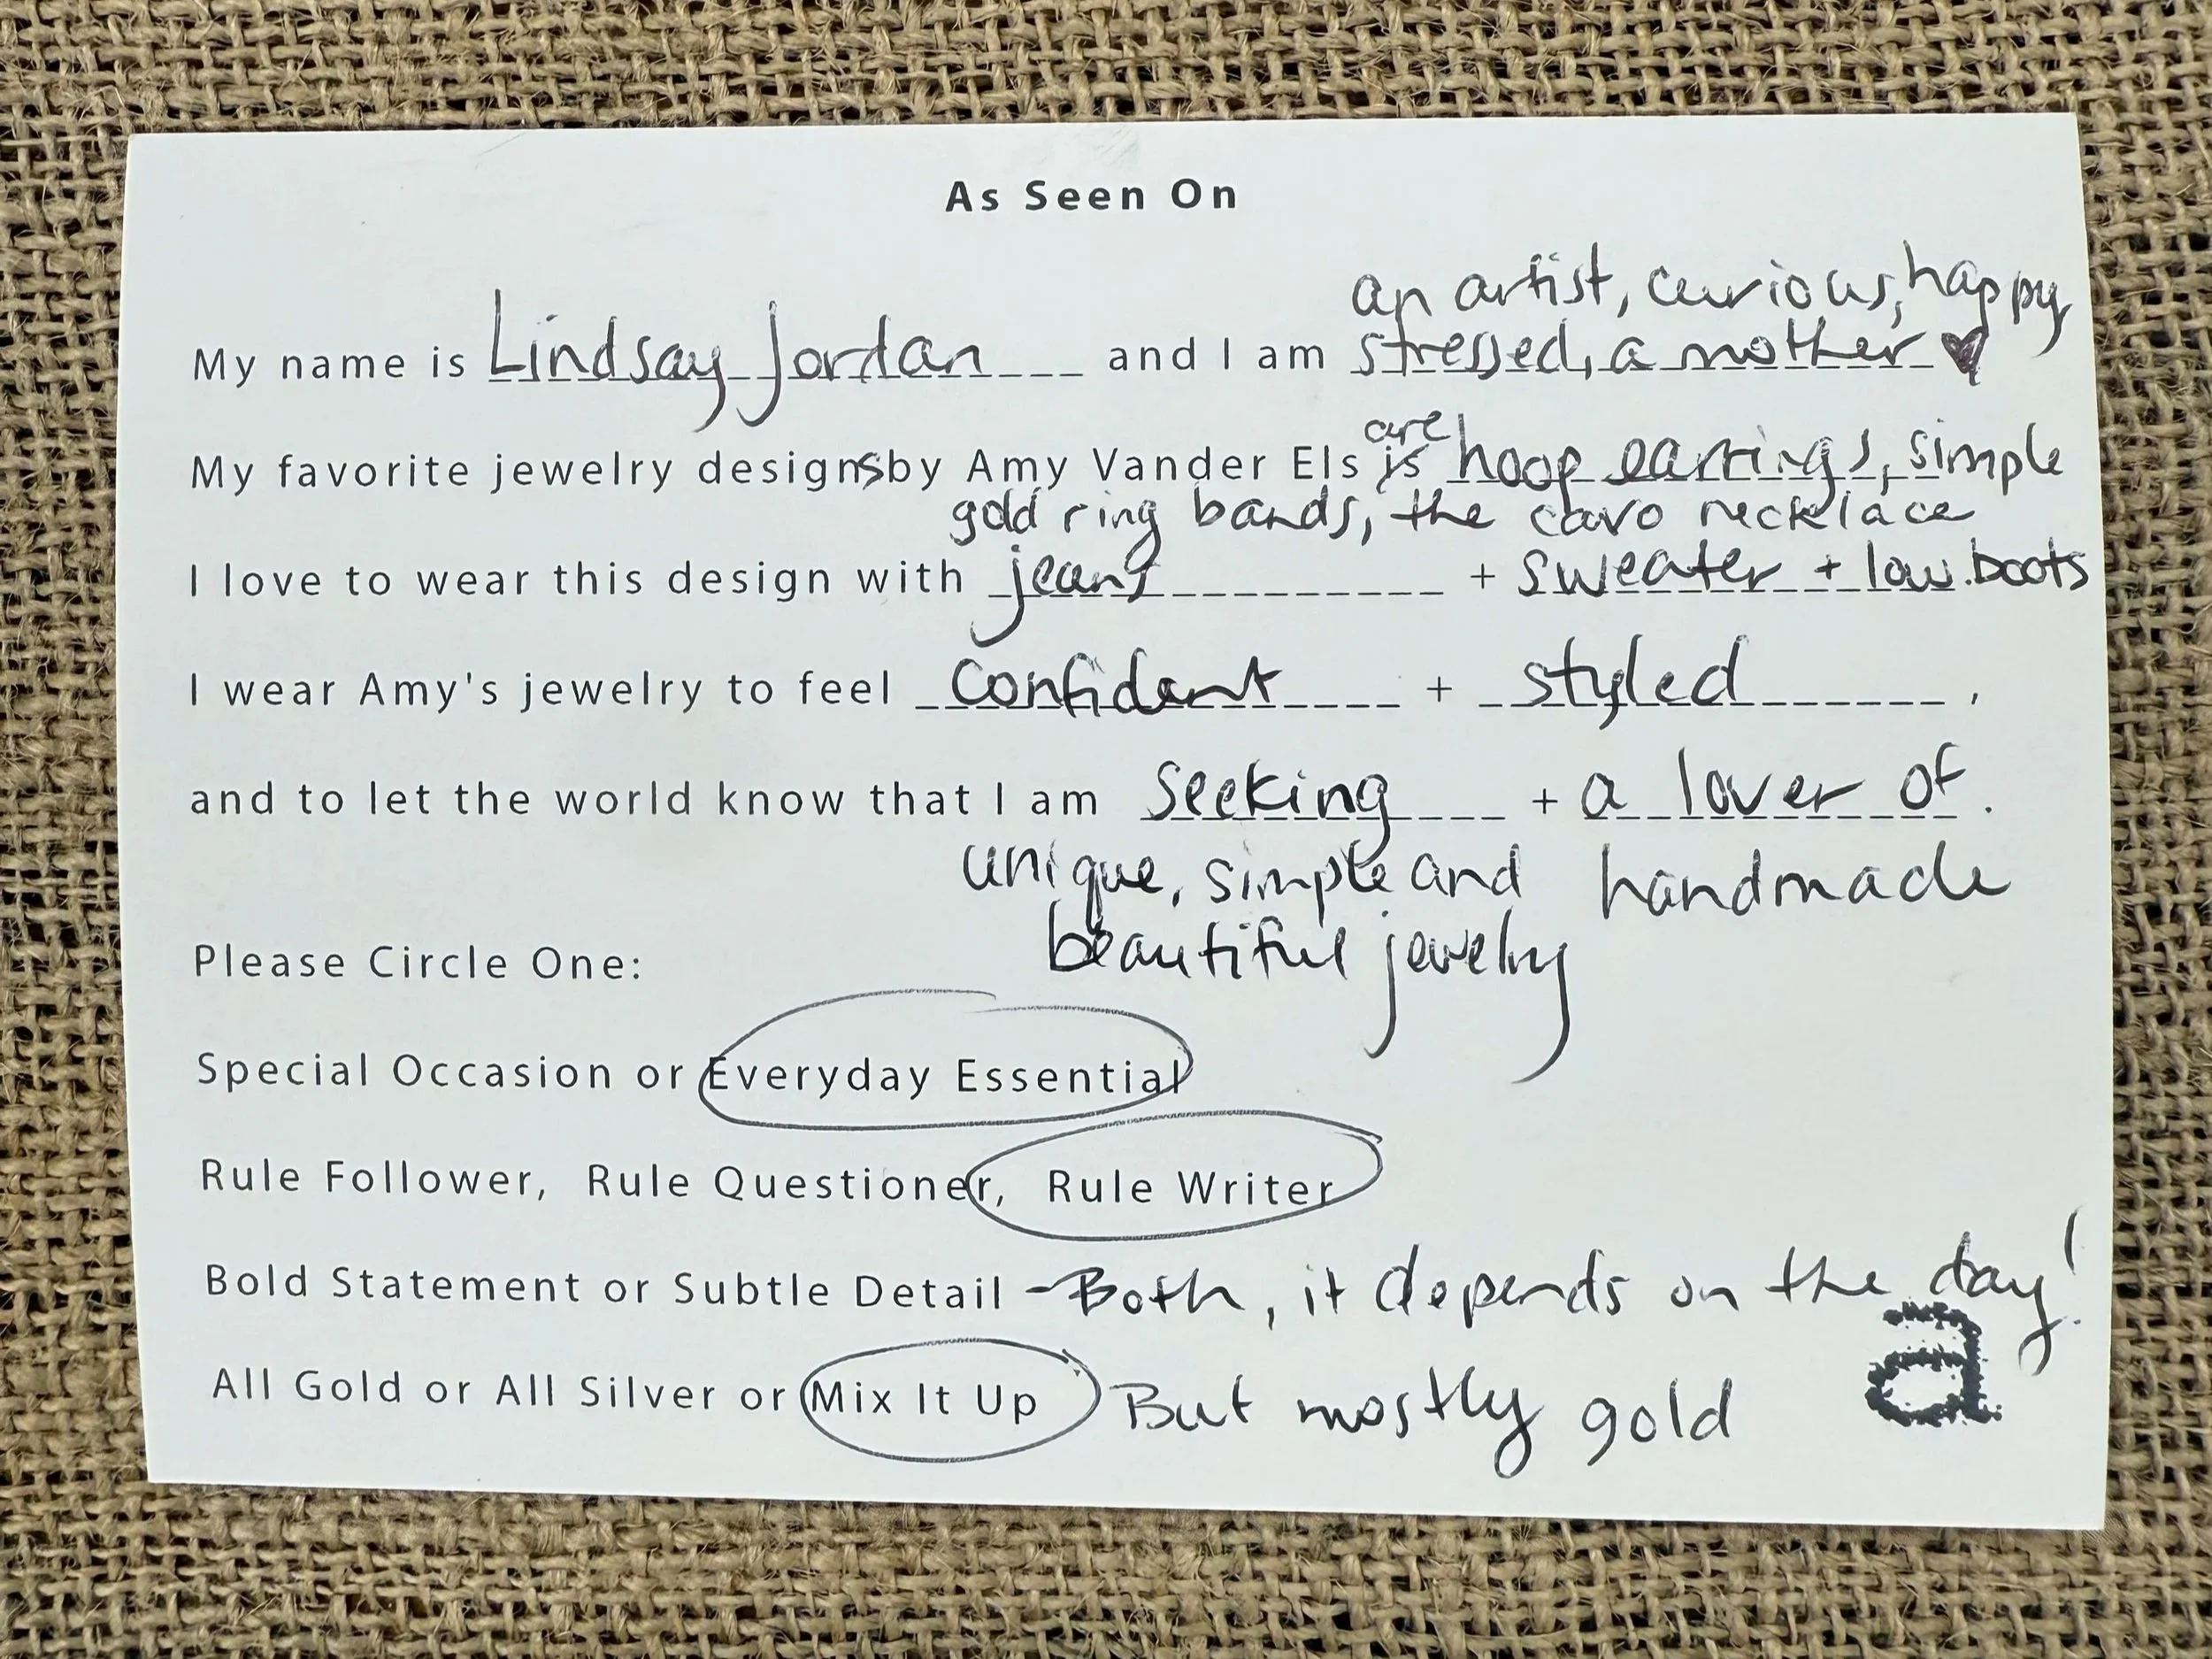 As Seen On
an artist, curious, happy
My name is Lindsay Jordan and I am stressed, a mother ♥
are
My favorite jewelry designs by Amy Vander Els is hoop earrings, simple
gold ring bands, the cavo necklace
I love to wear this design with jeans + sweater + low boots
I wear Amy's jewelry to feel confident + styled ,
and to let the world know that I am seeking + a lover of .
unique, simple and handmade
beautiful jewelry
Please Circle One:
Special Occasion or Everyday Essential
Rule Follower, Rule Questioner, Rule Writer
Bold Statement or Subtle Detail - Both, it depends on the day!
All Gold or All Silver or Mix It Up But mostly gold
a